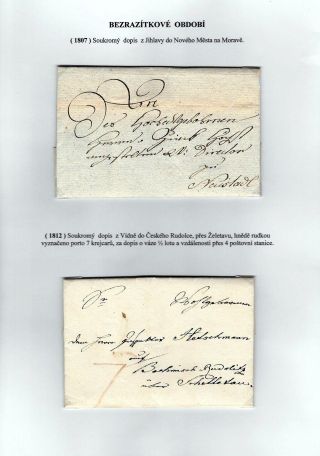 BEZRAZÍTKOVÉ OBDOBÍ
( 1807 ) Soukromý dopis z Jihlavy do Nového Města na Moravě.
An
Des Hochedelgebohrnen
Herrn
Director
zu
Neustadl
( 1812 ) Soukromý dopis z Vídně do Českého Rudolce, přes Želetavu, hnědě rudkou
vyznačeno porto 7 krejcarů, za dopis o váze ½ lotu a vzdálenosti přes 4 poštovní stanice.
Wohlgebohrnen
dem Herrn Inspektor Hetschmann
auf
7 Boehmisch Rudoletz
über Schelletau